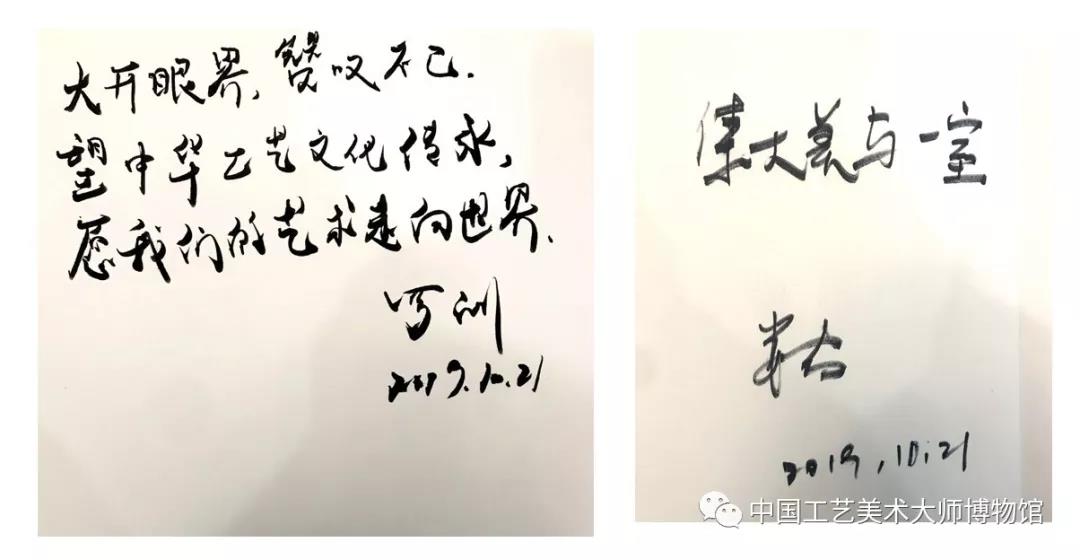 大开眼界,赞叹不已.
望中华工艺文化传承,
愿我们的艺术走向世界.
2019.10.21
集大美与一室
2019,10,21
中国工艺美术大师博物馆